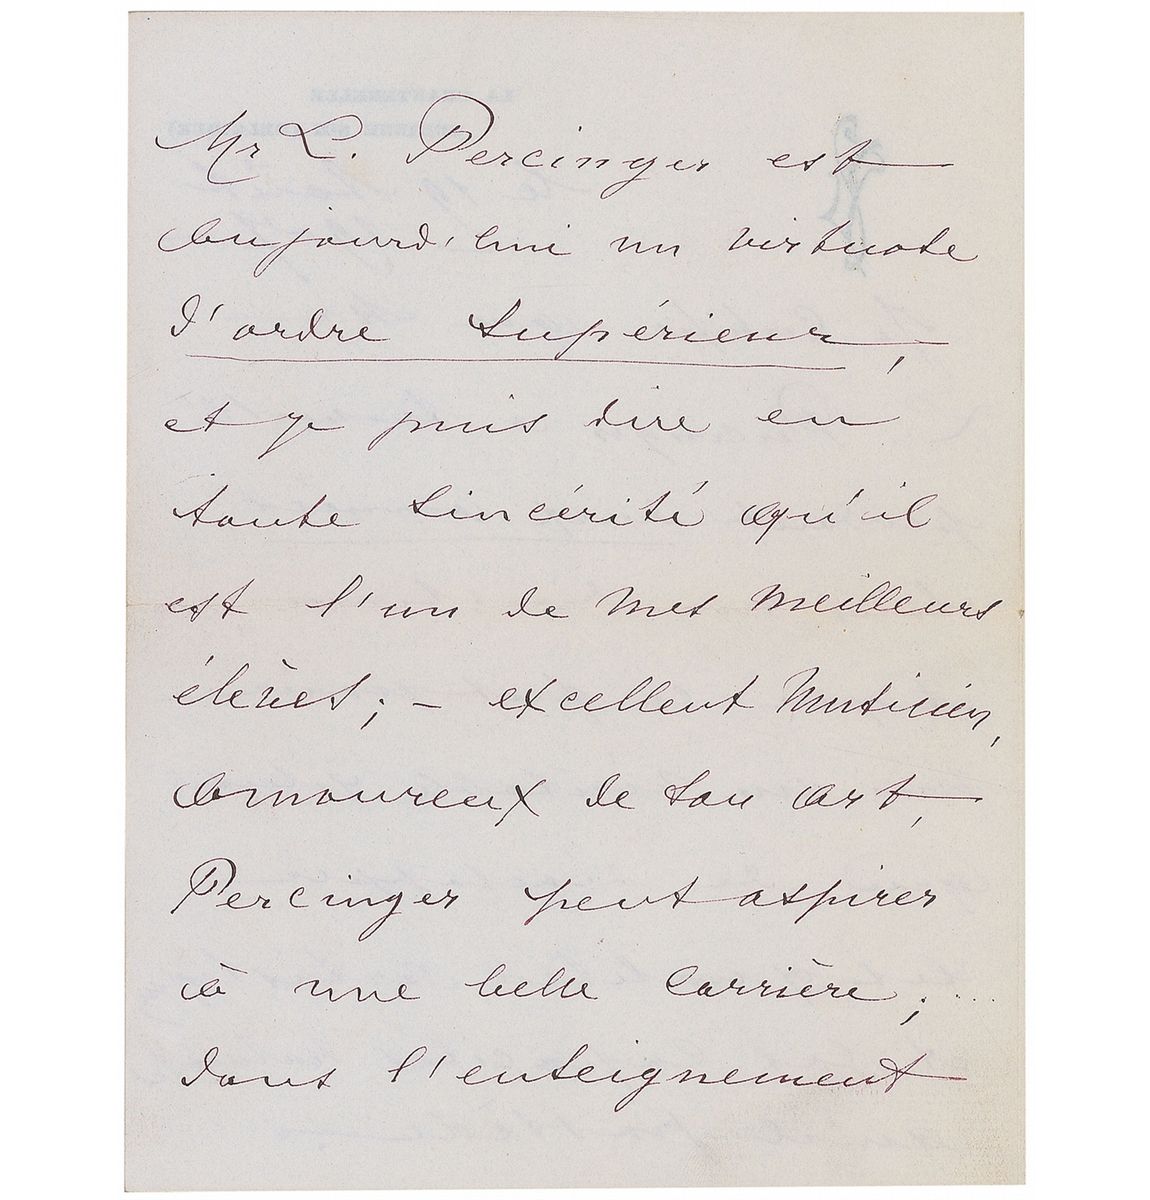 Mr L. Percinger est
aujourd'hui un virtuose
d'ordre supérieur,
et je puis dire en
toute sincérité qu'il
est l'un de mes meilleurs
élèves; – excellent musicien,
amoureux de son art,
Percinger peut aspirer
à une belle carrière; ....
dans l'enseignement